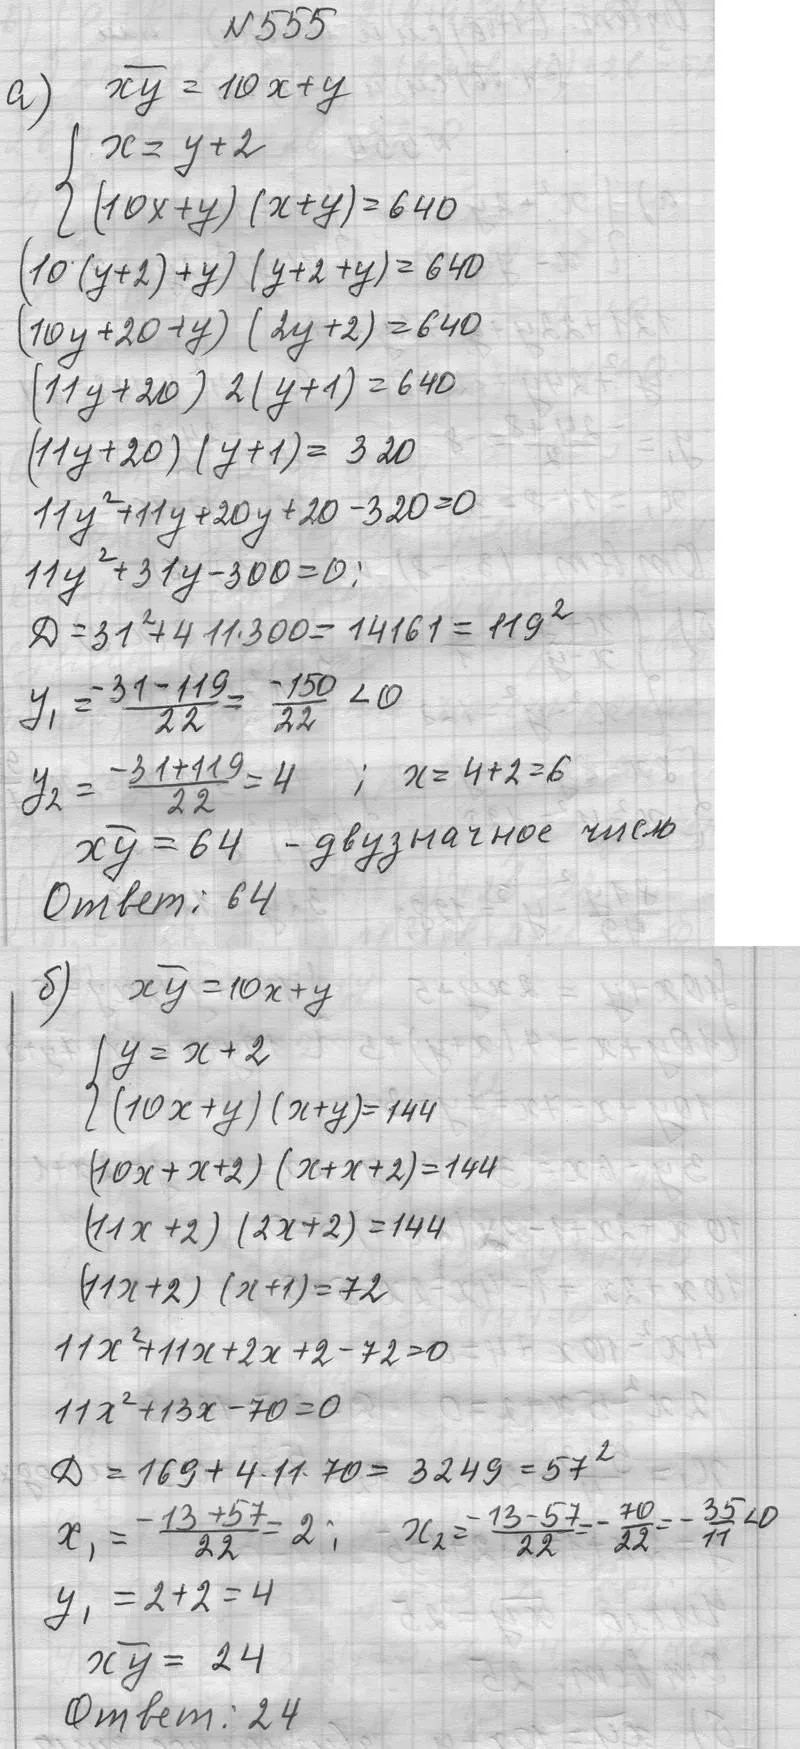 N555
а) xy = 10x+y
{ x = y+2
(10x+y) (x+y) = 640
(10·(y+2)+y) (y+2+y) = 640
(10y+20+y) (2y+2) = 640
(11y+20) 2(y+1) = 640
(11y+20) (y+1) = 320
11y²+11y+20y+20-320=0
11y²+31y-300=0;
D = 31²+4 11·300 = 14161 = 119²
y₁ = (-31-119)/22 = -150/22 < 0
y₂ = (-31+119)/22 = 4 ; x = 4+2 = 6
xy = 64 - двузначное число
Ответ: 64
б) xy = 10x+y
{ y = x+2
(10x+y) (x+y) = 144
(10x+x+2) (x+x+2) = 144
(11x+2) (2x+2) = 144
(11x+2) (x+1) = 72
11x²+11x+2x+2-72=0
11x²+13x-70=0
D = 169+4·11·70 = 3249 = 57²
x₁ = (-13+57)/22 = 2; x₂ = (-13-57)/22 = -70/22 = -35/11 < 0
y₁ = 2+2 = 4
xy = 24
Ответ: 24